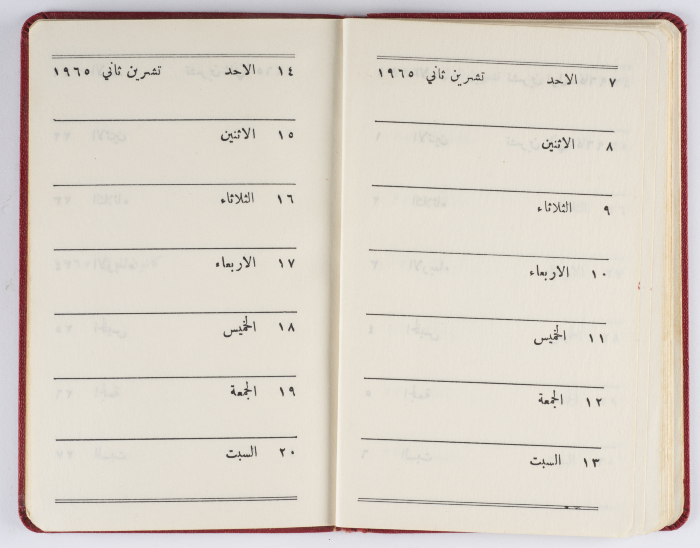 ٧ الاحد تشرين ثاني ١٩٦٥
٨ الاثنين
٩ الثلاثاء
١٠ الاربعاء
١١ الخميس
١٢ الجمعة
١٣ السبت
١٤ الاحد تشرين ثاني ١٩٦٥
١٥ الاثنين
١٦ الثلاثاء
١٧ الاربعاء
١٨ الخميس
١٩ الجمعة
٢٠ السبت